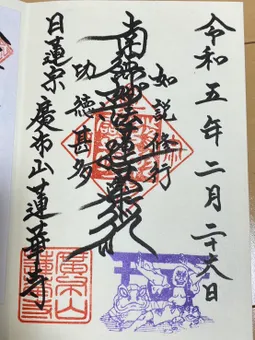 令和五年二月二十六日
如説修行
南無妙法蓮華経
功徳甚多
日蓮宗 廣布山蓮華寺